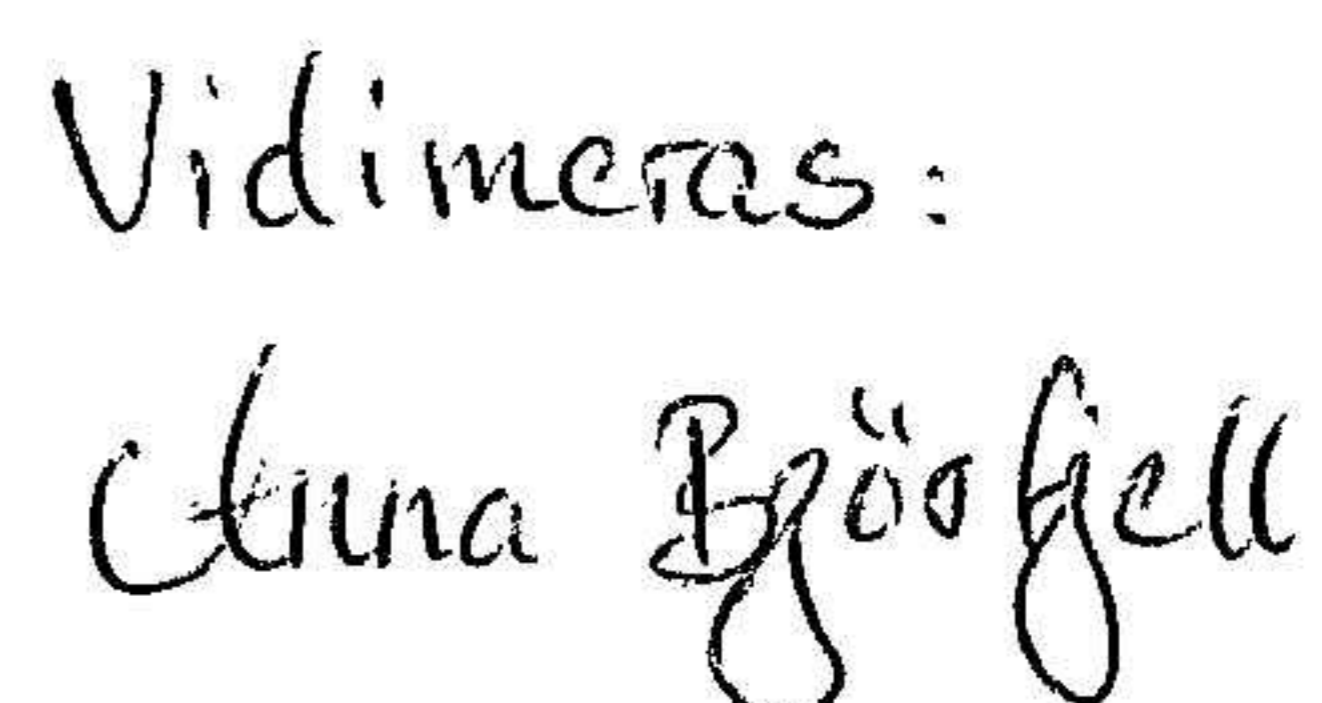 Vidimeras:
Anna Björfjell